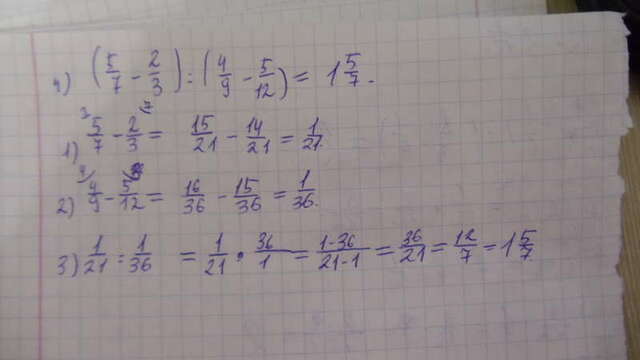 4) (5/7 - 2/3) : (4/9 - 5/12) = 1 5/7.
1) 5/7 - 2/3 = 15/21 - 14/21 = 1/21
2) 4/9 - 5/12 = 16/36 - 15/36 = 1/36.
3) 1/21 : 1/36 = 1/21 · 36/1 = 1·36/21·1 = 36/21 = 12/7 = 1 5/7